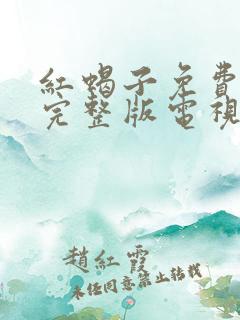 紅蝎子免費
完整版電視
趙紅霞
未任同意禁止转载